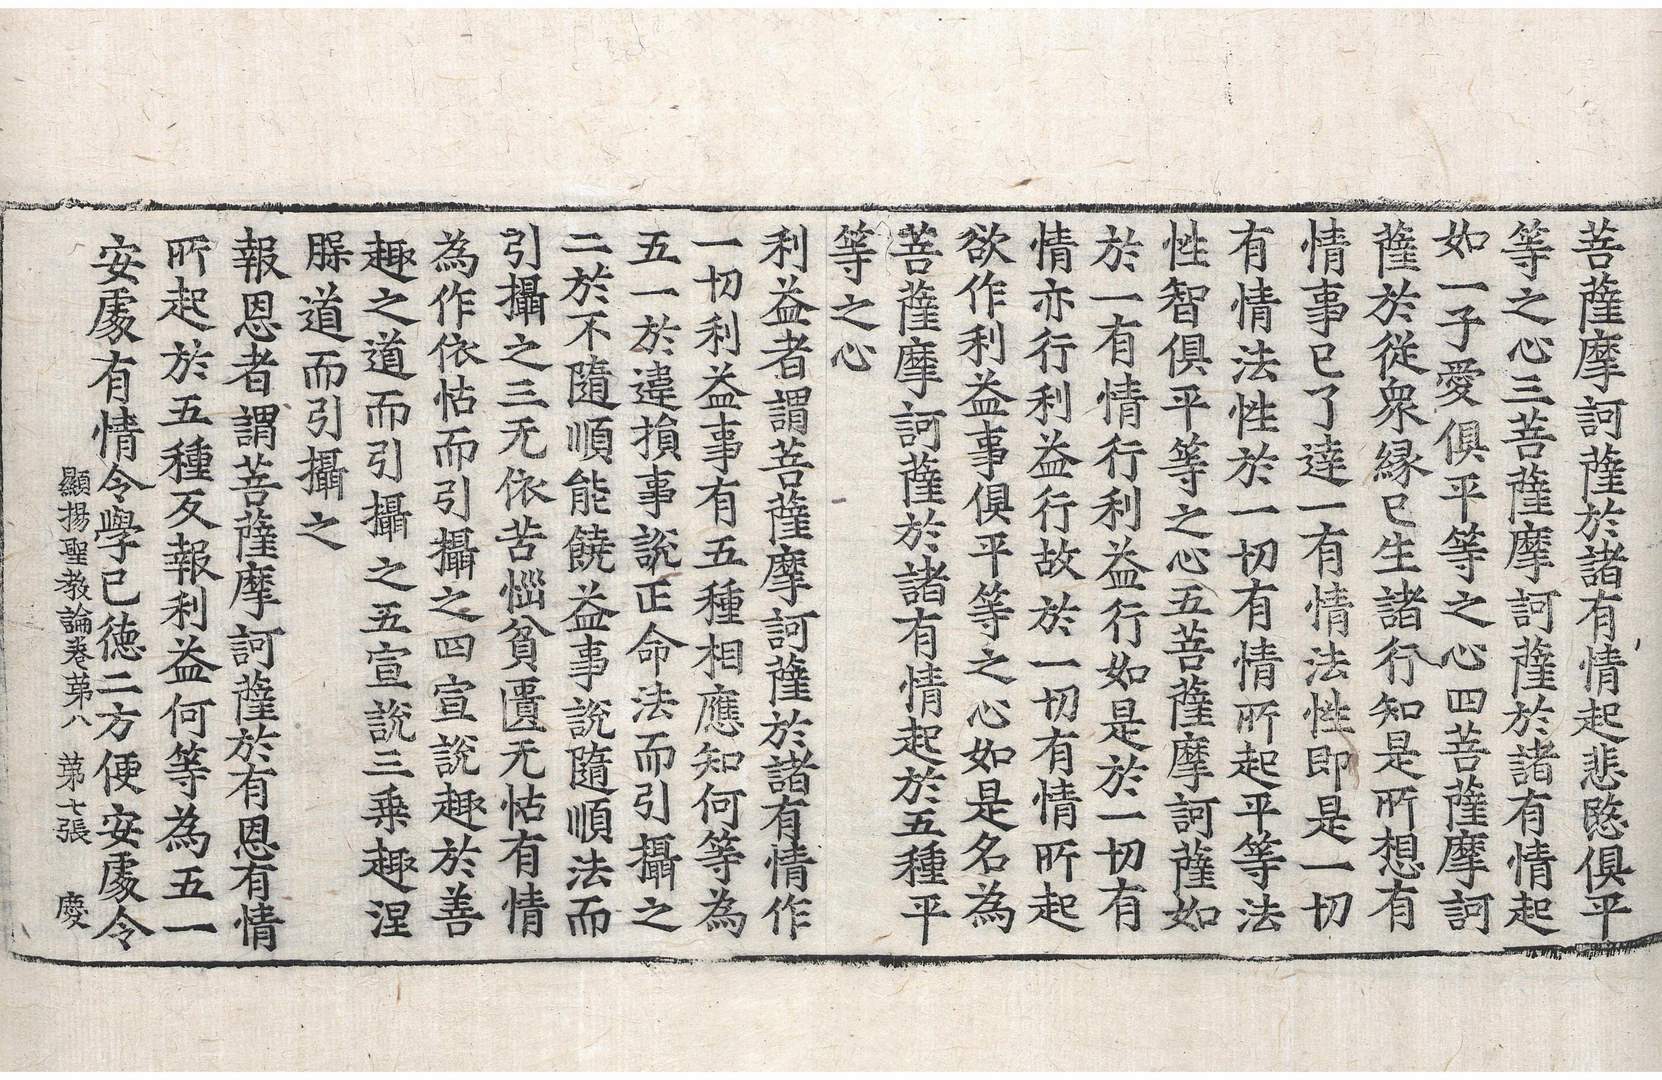 菩薩摩訶薩於諸有情起悲愍俱平
等之心三菩薩摩訶薩於諸有情起
如一子愛俱平等之心四菩薩摩訶
薩於從衆縁已生諸行知是所想有
情事已了達一有情法性即是一切
有情法性於一切有情所起平等法
性智俱平等之心五菩薩摩訶薩如
於一有情行利益行如是於一切有
情亦行利益行故於一切有情所起
欲作利益事俱平等之心如是名為
菩薩摩訶薩於諸有情起於五種平
等之心
利益者謂菩薩摩訶薩於諸有情作
一切利益事有五種相應知何等為
五一於違損事說正命法而引攝之
二於不隨順能饒益事說隨順法而
引攝之三无依苦惱貧匱无怙有情
為作依怙而引攝之四宣說趣於善
趣之道而引攝之五宣說三乘趣涅
脲道而引攝之
報恩者謂菩薩摩訶薩於有恩有情
所起於五種反報利益何等為五一
安處有情令學己德二方便安處令
顯揚聖教論卷苐八　苐七張　慶